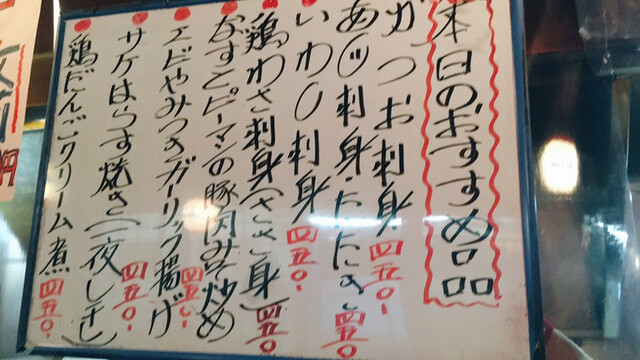 本日のおすすめ品
かつお刺身 四五〇-
あじ刺身たたき 四五〇
いわし刺身 四五〇-
鶏わさ刺身(ささ身) 四五〇
なすとピーマンの豚肉みそ炒め
エビやみつきガーリック揚げ 四五〇-
サケはらす焼き(一夜干し) 四五〇-
鶏だんごクリーム煮 四五〇-
円